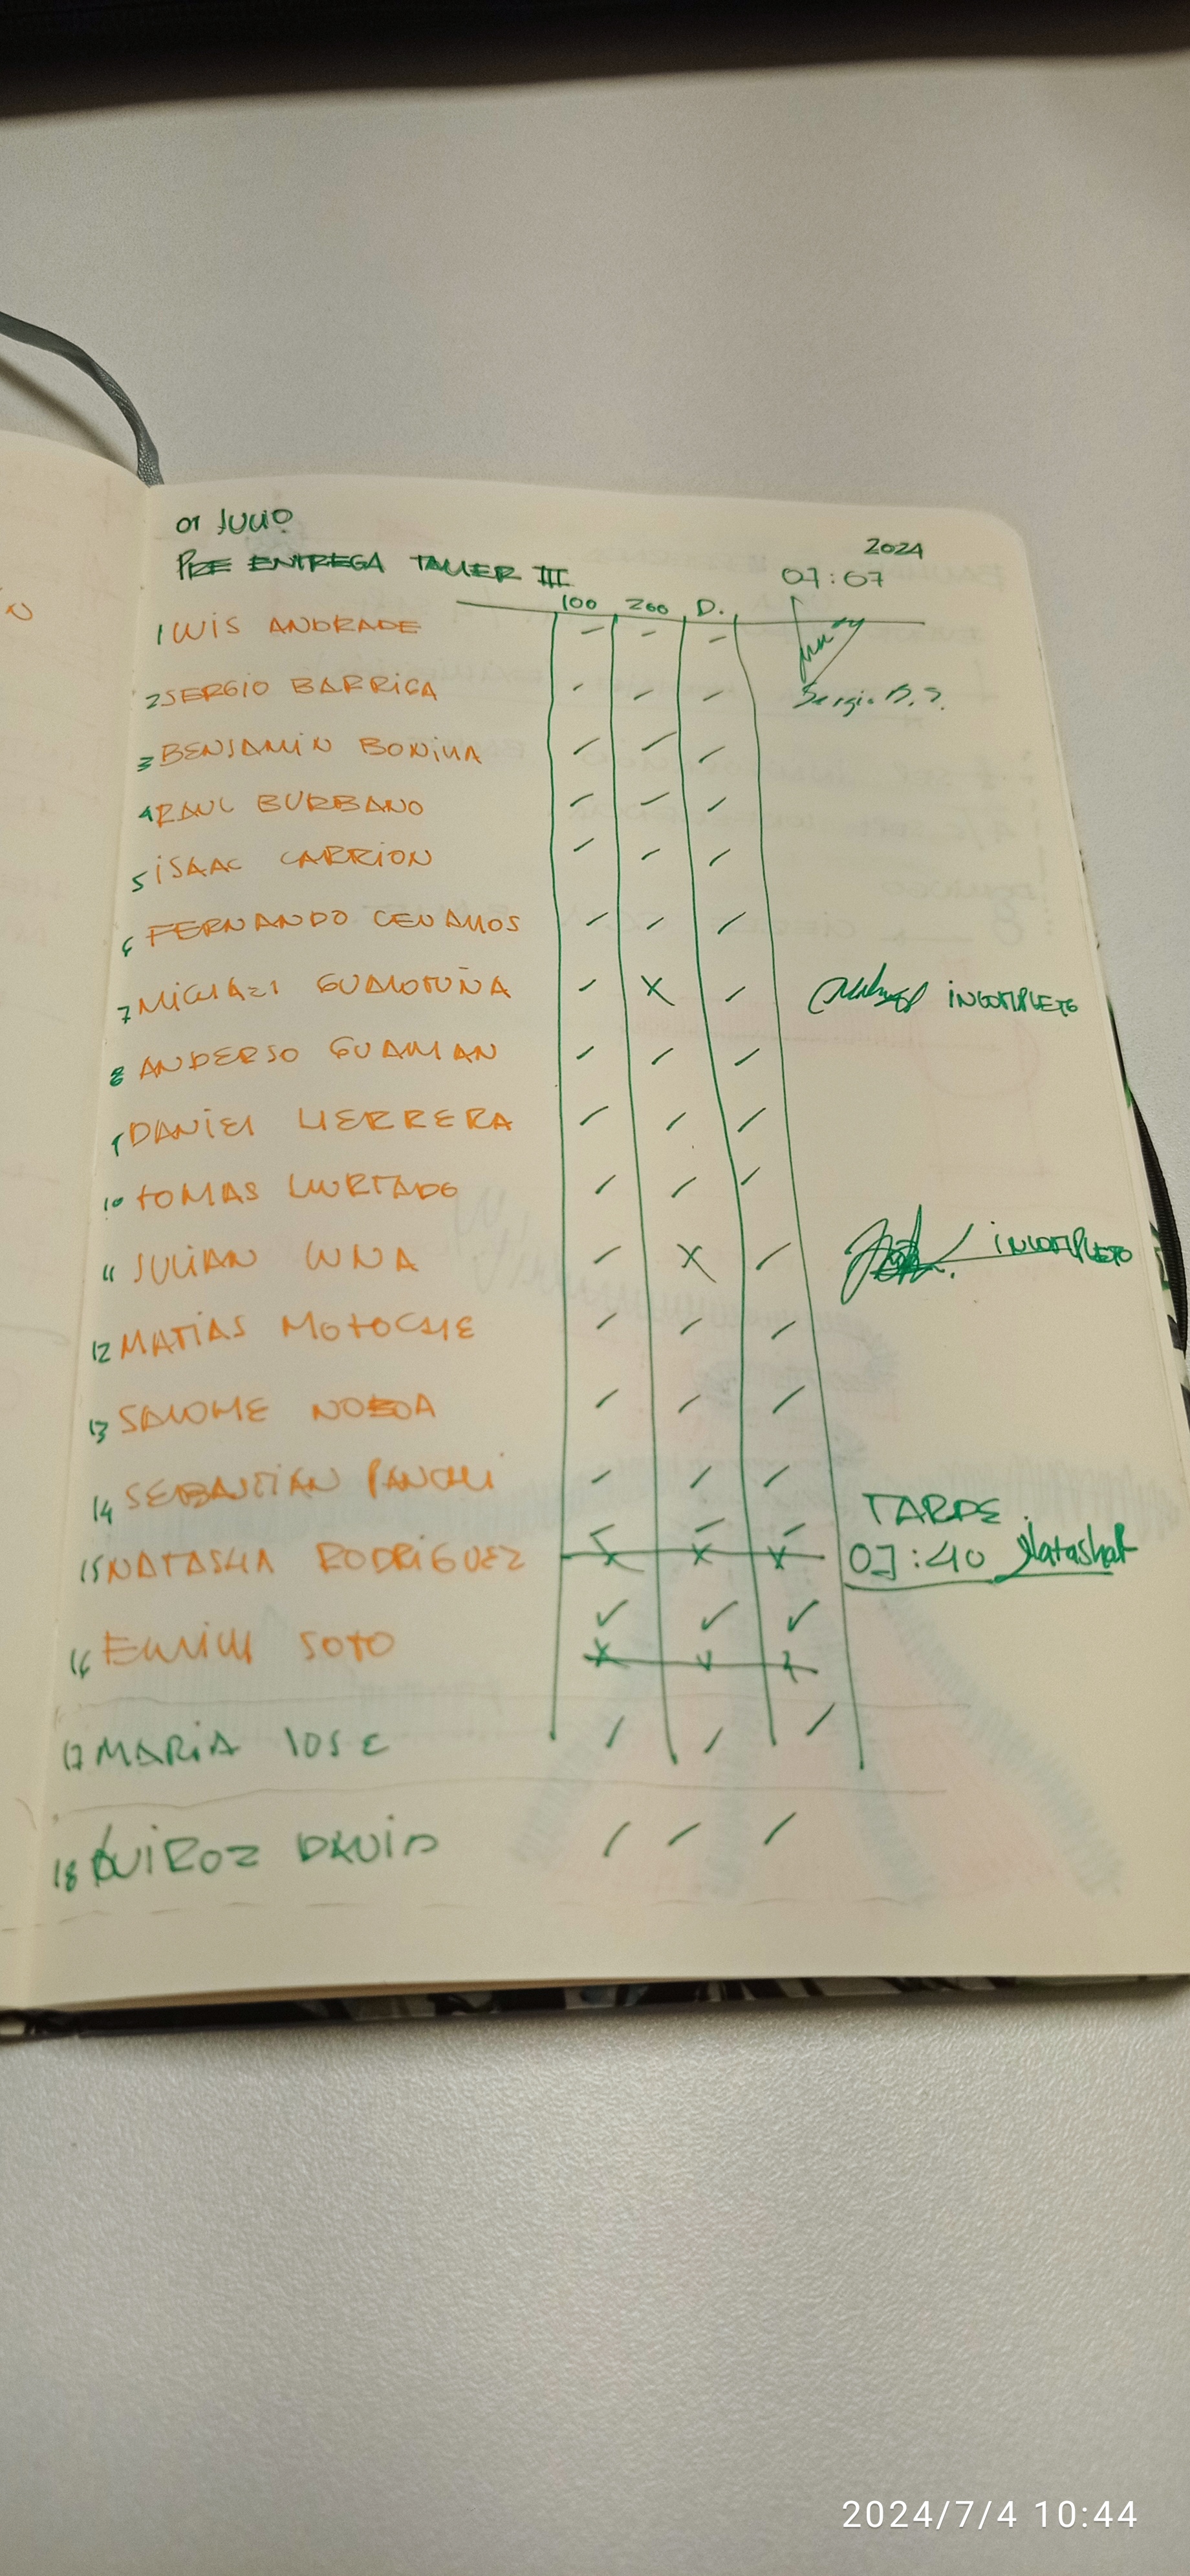 01 JULIO
PRE ENTREGA TALLER III
2024
07:07
100 200 D.
1 LUIS ANDRADE – – –
2 SERGIO BARRIGA / / / Sergio B. S.
3 BENJAMIN BONILLA / / /
4 RAUL BURBANO / / /
5 ISAAC CARRION / / /
6 FERNANDO CEVALLOS / / /
7 MICHAEL GUALOTUÑA / X / INCOMPLETO
8 ANDERSO GUAMAN / / /
9 DANIEL HERRERA / / /
10 TOMAS HURTADO / / /
11 JULIAN LUNA / X / INCOMPLETO
12 MATIAS MOTOCHE / / /
13 SALOME NOBOA / / /
14 SEBASTIAN PANCHI / / /
TARDE
15 NATASHA RODRIGUEZ X X X 07:40 Natasha R
✓ ✓ ✓
16 SOTO X X X
17 MARIA JOSE / / /
18 QUIROZ DAVID / / /
2024/7/4 10:44